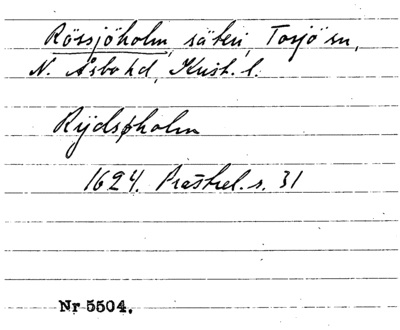 Rössjöholm, säteri, Tosjö sn,
N. Åsbo hd, Krist. l.
Rijdsøholm
1624. Prästrel. s. 31
Nr 5504.